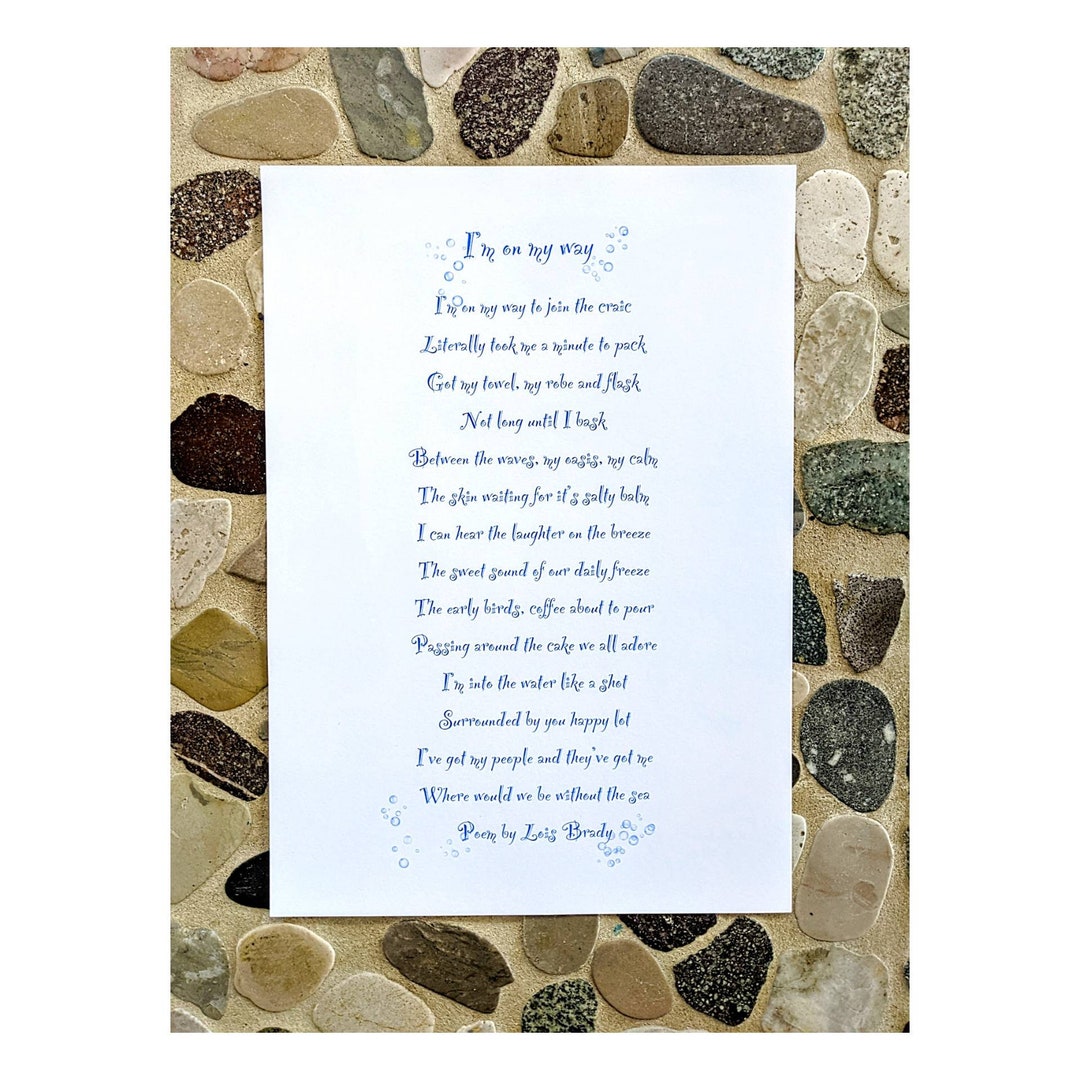 I'm on my way
I'm on my way to join the craic
Literally took me a minute to pack
Got my towel, my robe and flask
Not long until I bask
Between the waves, my oasis, my calm
The skin waiting for it's salty balm
I can hear the laughter on the breeze
The sweet sound of our daily freeze
The early birds, coffee about to pour
Passing around the cake we all adore
I'm into the water like a shot
Surrounded by you happy lot
I've got my people and they've got me
Where would we be without the sea
Poem by Lois Brady